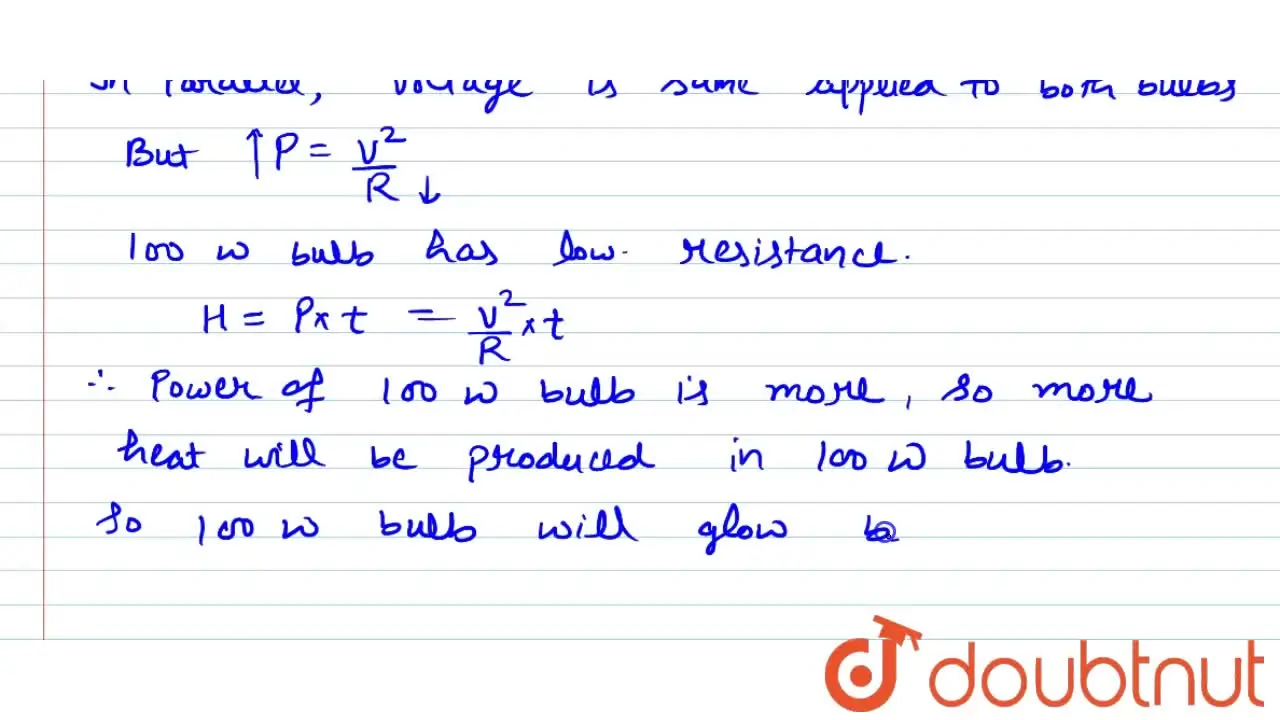 In Parallel, voltage is same applied to both bulbs
But ↑P = V²/R↓
100 w bulb has low resistance.
H = P×t = V²/R × t
∴ Power of 100 W bulb is more, so more
heat will be produced in 100 W bulb.
So 100 W bulb will glow
doubtnut